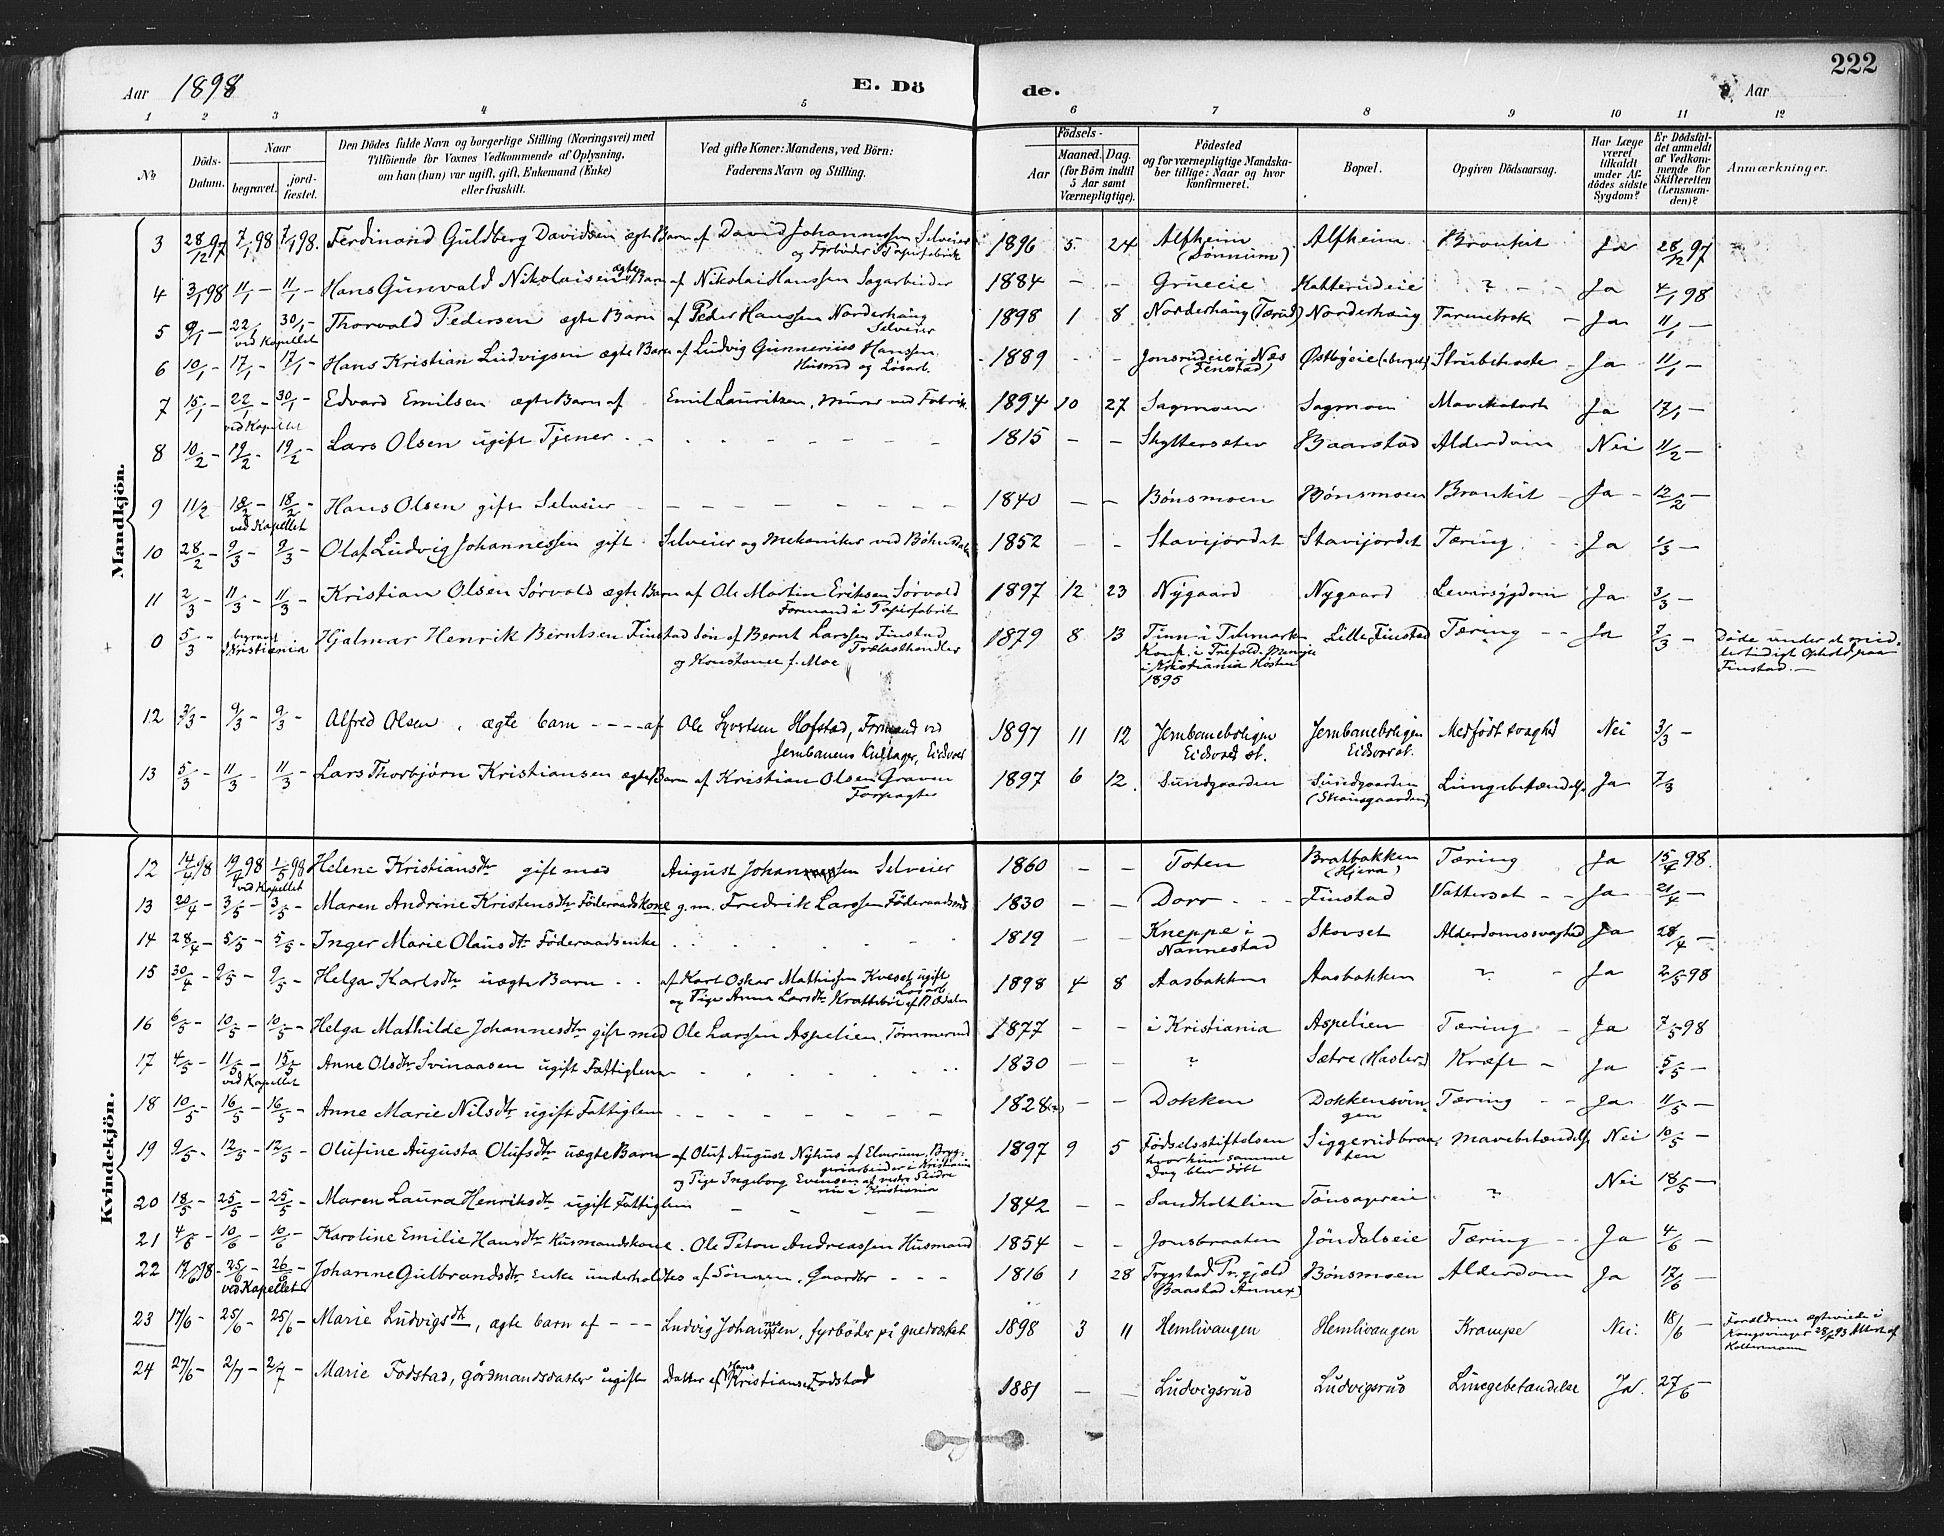 222
Aar 1898 E. Dö de. Aar
1 2 3 4 5 6 7 8 9 10 11 12
No
Döds-Datum.
Naar
begravet. jord-fæstet.
Den Dödes fulde Navn og borgerlige Stilling (Næringsvei) med
Tilföiende for Voxnes Vedkommende af Oplysning,
om han (hun) var ugift, gift, Enkemand (Enke)
eller fraskilt.
Ved gifte Koner: Mandens, ved Börn:
Faderens Navn og Stilling.
Födsels-
Aar Maaned. Dag.
(for Börn indtil
5 Aar samt
Værnepligtige).
Födested
og for værnepligtige Mandska-
ber tillige: Naar og hvor
konfirmeret.
Bopæl.
Opgiven Dödsaarsag.
Har Læge
været
tilkaldt
under Af-
dödes sidste
Sygdom?
Er Dödsfal-
det anmeldt
af Vedkom-
mende for
Skifteretten
(Lensman-
den)?
Anmærkninger.
Mandkjön.
3 28/12 97 7/1 98 7/1 98. Ferdinand Guldberg Davidsen ægte Barn af David Johannessen Selveier 1896 5 24 Alfheim Alfheim Bronkit Ja 28/12 97
og Fyrbøder Papirfabrik (Lønnum)
4 3/1 98 11/1 - 11/1 - Hans Gunvald Nikolaisen ægte Barn af Nikolai Hanssen Sagarbeider 1884 - - Grueeie Katterudeie ? - - Ja 4/1 98
5 9/1 - 22/1 - 30/1 - Thorvald Pedersen ægte Barn af Peder Hanssen Norderhaug 1898 1 8 Norderhaug (Tærud) Norderhaug Ja 11/1 -
ved Kapellet Selveier
6 10/1 - 17/1 - 17/1 - Hans Kristian Ludvigsen ægte Barn af Ludvig Gunnerius Hanssen 1889 - - Jonsrudeie i Næs Østbyeie Strubehoste - Ja 11/1 -
Husmd og Løsarb. (Fenstad)
7 15/1 - 22/1 - 30/1 - Edvard Emilsen ægte Barn af Emil Lauritzen, Murer ved Fabrik. 1894 10 27 Sagmoen Sagmoen Mavekatarh Ja 17/1 -
ved Kapellet
8 10/2 - 19/2 - 19/2 - Lars Olsen ugift Tjener - - 1815 - - Skyttersæter Baarstad Alderdom Nei 11/2 -
9 11/2 18/2 - 18/2 - Hans Olsen gift Selveier 1840 - - Bönsmoen Bönsmoen Bronkit - Ja - 12/2 -
ved Kapellet
10 28/2 - 9/3 - 9/3 - Olaf Ludvig Johannessen gift Selveier og Mekaniker ved Bøhnsdalen 1852 - - Stavijordet Stavijordet Tæring - Ja 1/3 -
11 2/3 - 11/3 - 11/3 - Kristian Olsen Sørvold ægte Barn af Ole Martin Eriksen Sørvold 1897 12 23 Nygaard Nygaard Leversygdom Ja 3/3 -
Formand i Papirfabrik
0 5/3 - begravet i Kristiania Hjalmar Henrik Berntsen Finstad Søn af Bernt Larssen Finstad 1879 8 13 Tinn i Telemarken Lille Finstad Tæring - - Ja 7/3 - Døde under et mid-
Trælasthandler Konf. i Trefold. Menigh lertidigt Ophold paa
og Konstance f. Moe i Kristiania Høsten Finstad. -
1895
12 3/3 - 9/3 - 9/3 - Alfred Olsen, ægte barn - - - - af Ole Syvertsen Hofstad, Formand ved 1897 11 12 Jernbaneboligen Jernbaneboligen Medfødt svaghed Nei 3/3 -
Jernbanens Kullager, Eidsvold Eidsvold st. Eidsvol st.
13 5/3 - 11/3 - 11/3 - Lars Thorbjørn Kristiansen ægte Barn af Kristian Olsen Graven 1897 6 12. Sundgaarden Sundgaarden Lungebetændelse Ja 7/3
Forpagter (Skonsgaarden)
Kvindekjön.
12 14/4 98 19/4 98 1/5 98 Helene Kristiansdtr gift med August Johannessen Selveier 1860 - - Toten Bratbakken Tæring Ja 15/4 98.
ved Kapellet (Hjera)
13 20/4 - 3/5 - 3/5 - Maren Andrine Kristensdtr Føderaadskone g.m. Fredrik Larssen Føderaadsmd 1830 - - Dorr - - Finstad Vattersot - - Ja - 21/4 -
14 28/4 - 5/5 - 5/5 - Inger Marie Olausdtr Føderaadsenke 1819 - - Kneppe i Skovset Alderdomssvaghed Ja 28/4 -
Nannestad
15 30/4 - 9/5 - 9/5 - Helga Karlsdtr uægte Barn - - af Karl Oskar Mathissen Kveset ugift 1898 4 8 Aasbakken Aasbakken ? - Ja 2/5 98
Løsarb.
og Pige Anna Larsdtr Krattebøl af N. Odalen
16 6/5 - 10/5 - 10/5 - Helga Mathilde Johannesdtr gift med Ole Larssen Aspelien. Tømmermd 1877 - - i Kristiania Aspelien Tæring - Ja 7/5 98
17 4/5 - 11/5 - 15/5 Anne Olsdtr Svinaasen ugift Fattiglem 1830 - - ? Sætre (Hasler) Kræft - Ja 5/5 -
ved Kapellet
18 10/5 - 16/5 - 16/5 - Anne Marie Nilsdtr ugift Fattiglem 1828(?) - - Dokken Dokkensvin- Tæring - - Ja 11/5 -
gen
19 9/5 - 12/5 - 12/5 - Olufine Augusta Olufsdtr uægte Barn af Oluf August Nyhus af Elverum, Bryg- 1897 9 5 Fødselsstiftelsen Siggerudbraa- Mavebetændelse Nei 10/5 -
geriarbeider i Kristiania hvor hun samme ten
og Pige Ingeborg Evensen af vestre Slidre Dag blev døbt
nu i Kristiania
20 18/5 - 25/5 - 25/5 - Maren Laura Henriksdtr ugift Fattiglem - - - - 1842 - - Sandholtlien Tønsagereie ? Nei 18/5 -
21 4/6 - 10/6 - 10/6 - Karoline Emilie Hansdtr Husmandskone. Ole Peton Andreassen Husmand 1854 - - Jonsbraaten Jöndalseie Tæring - - Ja 4/6 -
22 17/6 98 - 25/6 - 26/6 - Johanne Gulbrandsdtr Enke underholdtes af Sønnen, Gaardbr - - - 1816 1 28 Trygstad Pr.gjæld Bönsmoen Alderdom Ja 17/6 -
ved Kapellet (Baastad Annex)
23 17/6 - 25/6 - 25/6 - Marie Ludvigsdtr, ægte barn af - - - Ludvig Johannesen, fyrbøder på 1898 3 11 Hemlivangen Hemlivangen Krampe Nei. 18/6 - Forældrene ægteviede i
Kongsvinger 28/ 93 Attest af
24 27/6 - 2/7 - 2/7 - Marie Fodstad, gårdmandsdatter ugift Datter af Hans Kristiansen Fodstad 1881 - - Ludvigsrud Ludvigsrud Lungebetændelse Ja. 27/6 -